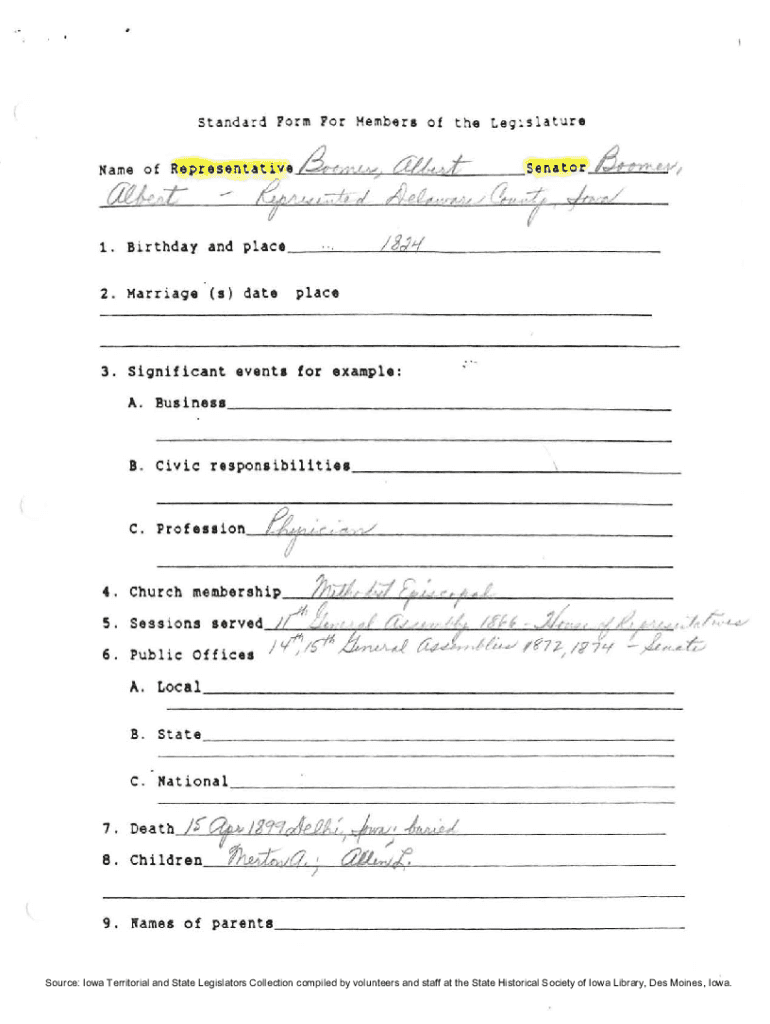 Standard Form For Members of the Legislature
Name of Representative Boomer, Albert Senator Boomer,
Albert - Represented Delaware County, Iowa
1. Birthday and place 1824
2. Marriage (s) date place
3. Significant events for example:
A. Business
B. Civic responsibilities
C. Profession Physician
4. Church membership Methodist Episcopal
5. Sessions served 11th General Assembly 1866 - House of Representatives
6. Public Offices 14th, 15th General Assemblies 1872, 1874 - Senate
A. Local
B. State
C. National
7. Death 15 Apr 1899 Delhi, Iowa; buried
8. Children Merton A.; Allen L.
9. Names of parents
Source: Iowa Territorial and State Legislators Collection compiled by volunteers and staff at the State Historical Society of Iowa Library, Des Moines, Iowa.